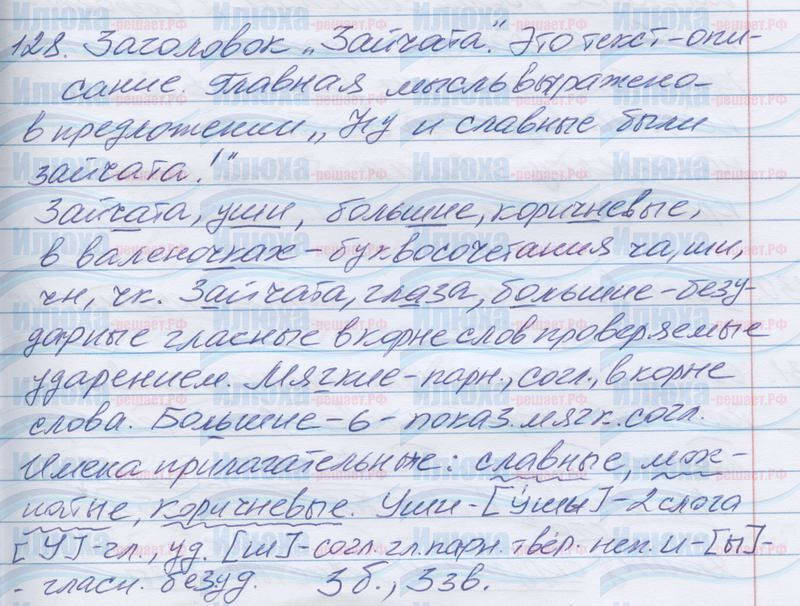 128. Заголовок „Зайчата". Это текст-опи-
сание. Главная мысль выражено
в предложении „Ну и славные были
зайчата!"
Зайчата, уши, большие, коричневые,
в валеночках - буквосочетания ча, ши,
чн, чк. Зайчата, глаза, большие - безу-
дарные гласные в корне слов проверяемые
ударением. Мягкие - парн., согл., в корне
слова. Большие - ь - показ. мягк. согл.
Имена прилагательные: славные, мох-
натые, коричневые. Уши - [у́шы] - 2 слога
[У] - гл., уд. [ш] - согл. гл. парн. твёр. неп. и - [ы] -
- гласн. безуд. 3 б., 3 зв.